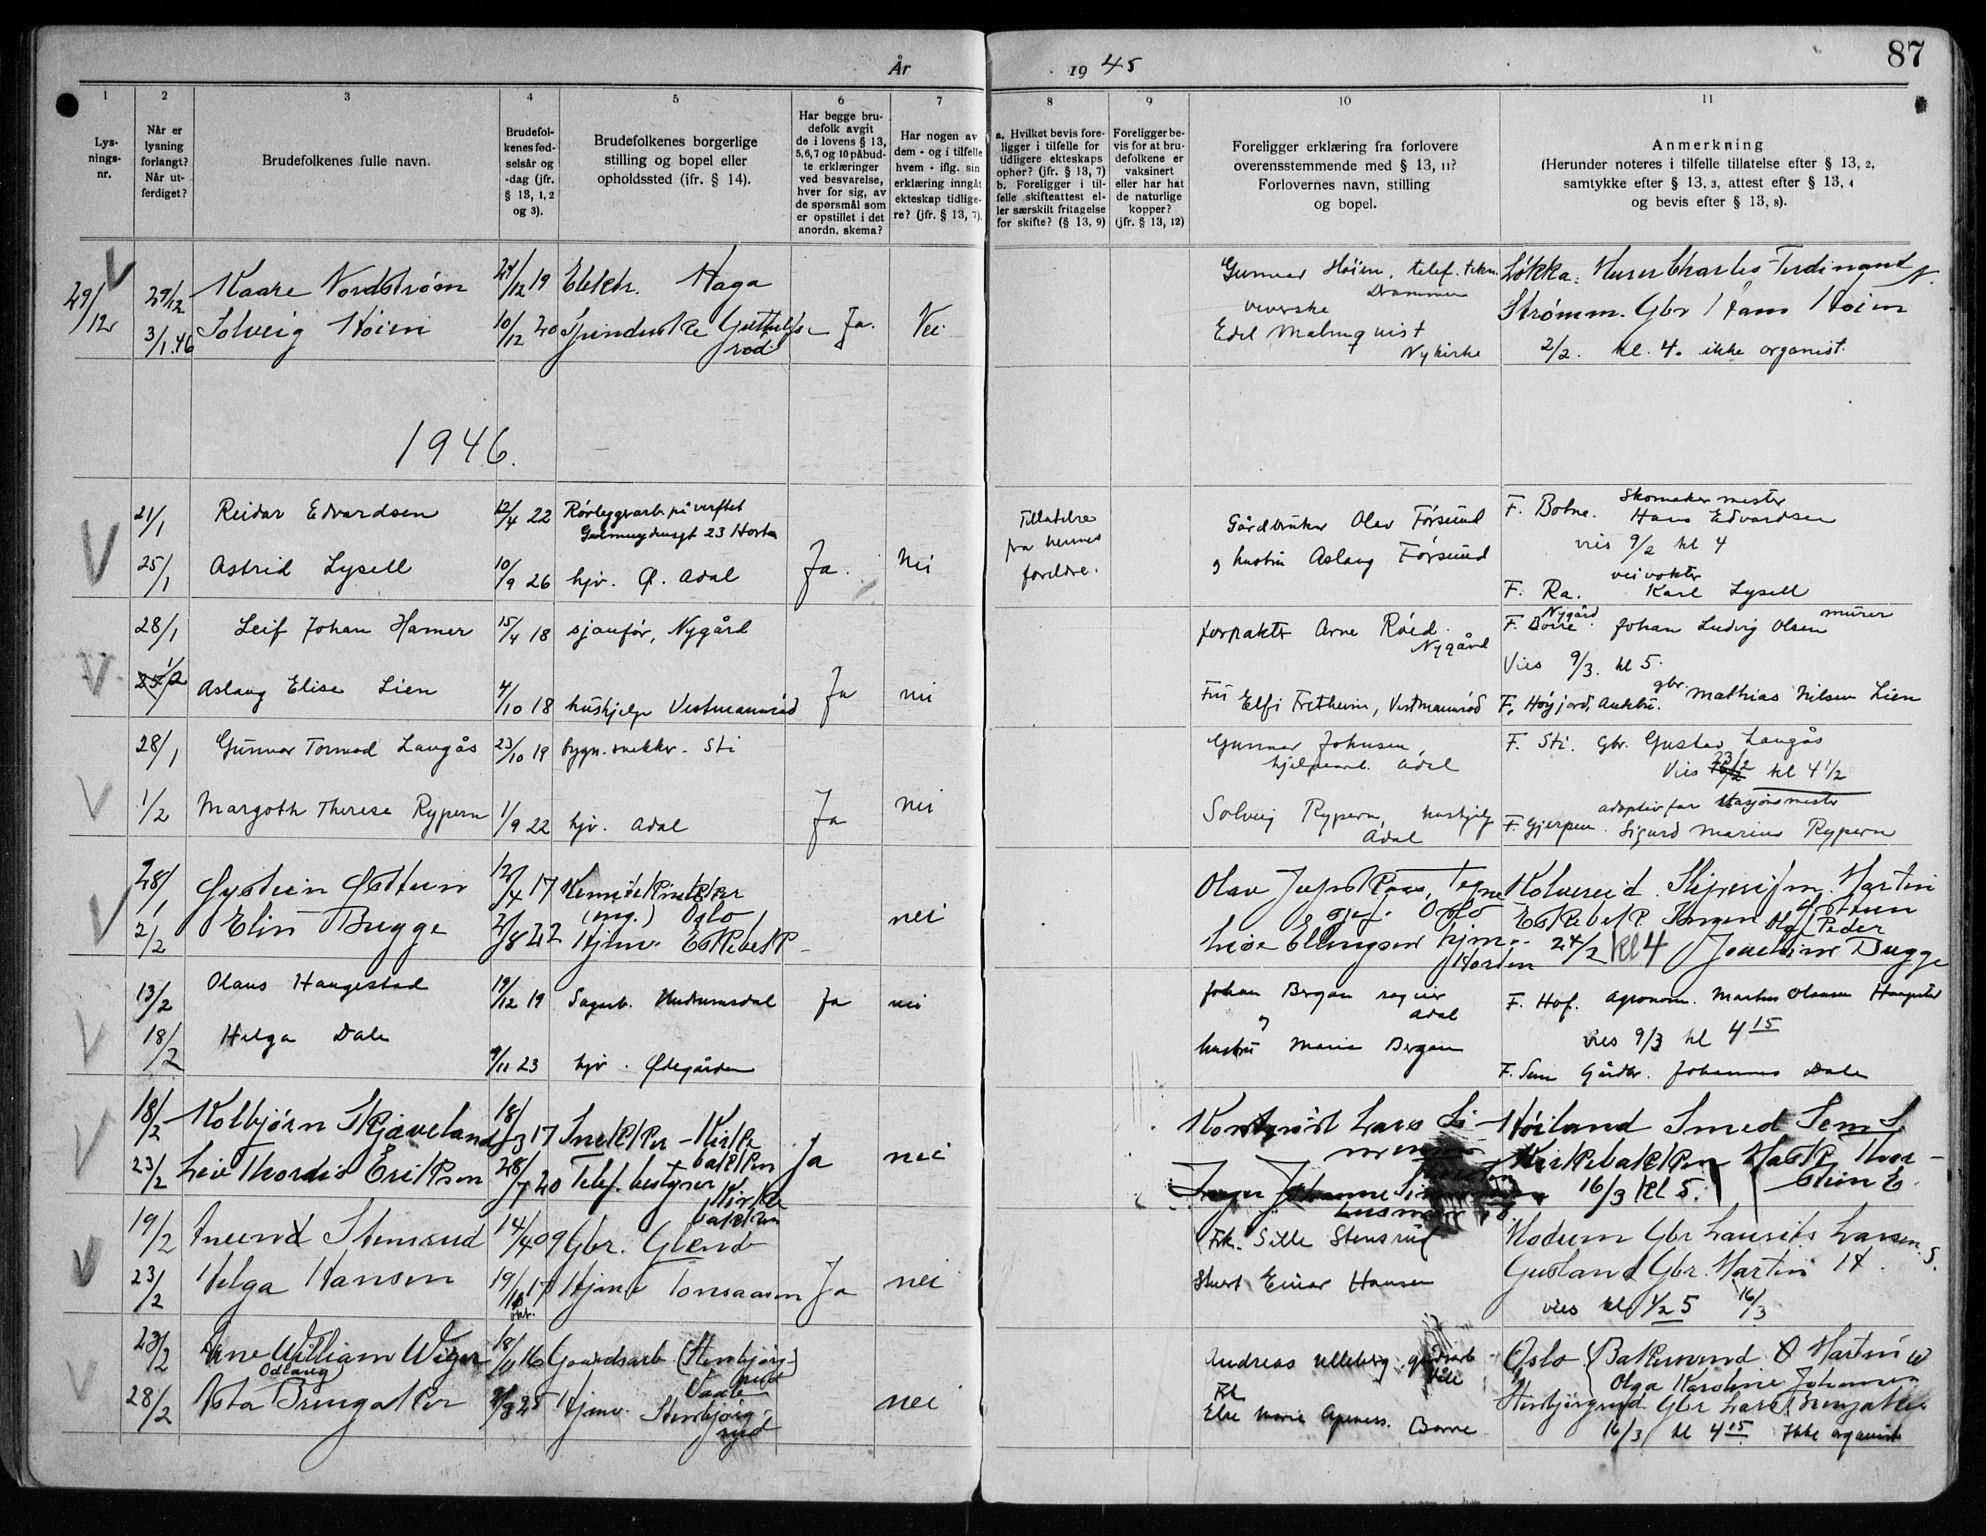 År 1945
87
1
2
3
4
5
6
7
8
9
10
11
Lys-
nings-
nr.
Når er
lysning
forlangt?
Når ut-
ferdiget?
Brudefolkenes fulle navn.
Brudefol-
kenes fød-
selsår og
-dag (jfr.
§ 13, 1, 2
og 3).
Brudefolkenes borgerlige
stilling og bopel eller
opholdssted (jfr. § 14).
Har begge bru-
defolk avgit
de i lovens § 13,
5, 6, 7 og 10 påbud-
te erklæringer
ved besvarelse,
hver for sig, av
de spørsmål som
er opstillet i det
anordn. skema?
Har nogen av
dem - og i tilfelle
hvem - iflg. sin
erklæring inngått
ekteskap tidlige-
re? (jfr. § 13, 7).
a. Hvilket bevis fore-
ligger i tilfelle for
tidligere ekteskaps
ophør? (jfr. § 13, 7)
b. Foreligger i til-
felle skifteattest el-
ler særskilt fritagelse
for skifte? (§ 13, 9)
Foreligger be-
vis for at bru-
defolkene er
vaksinert
eller har hat
de naturlige
kopper?
(jfr. § 13, 12)
Foreligger erklæring fra forlovere
overensstemmende med § 13, 11?
Forlovernes navn, stilling
og bopel.
Anmerkning
(Herunder noteres i tilfelle tillatelse efter § 13, 2,
samtykke efter § 13, 3, attest efter § 13, 4
og bevis efter § 13, 8).
29/12 29/12 Kaare Nordstrøm 24/12 19 Elektr. Haga
3/1.46 Solveig Høien 10/12 20 Spinderske Ja. Nei
Gunnar Høien, telef. tekn.
Drammen
veverske
Edel Malmquist
Nykirke
Løkka. Murer Charles Ferdinand N.
Strømm. Gbr Hans Høien
2/2. kl. 4. ikke organist.
1946.
21/1 Reidar Edvardsen 12/4 22 Rørleggerarb. på verftet
23 Horten
25/1 Astrid Lysell 10/9 26 hjv. Ø. Adal Ja. Nei
Tillatelse
fra hennes
foreldre.
Gårdbruker Olav Førsund
og hustru Aslaug Førsund
F. Botne. Skomaker mester
Hans Edvardsen
vies 9/2 kl 4
veivokter
F. Ra. Karl Lysell
28/1 Leif Johan Hamer 15/4 18 sjåufør, Nygård
1/2 Aslaug Elise Lien 4/10 18 hushjelp Vestmannrød Ja nei
forpakter Arne Røed
Nygård
Fru Elfi Fretheim, Vestmannrød
Nygård murer
F. Borre. Johan Ludvig Olsen
Vies 9/3. kl 5.
gbr
F. Høyjord, Mathias Nilsen Lien
28/1 Gunnar Tormod Langås 23/10 19 bygn. snekker. Sti
1/2 Margoth Therese Rypern 1/9 22 hjv. Adal Ja nei
Gunnar Johnsen,
hjelpearb. Adal
Solveig Rypern, hushjelp
Adal
F. Sti. Gbr. Gustav Langås
Vies 23/2 kl 4 1/2
adoptivfar stasjonsmester
F. Gjerpen. Sigurd Marius Rypern
28/1 Øystein Østtun 12/4 17
(ing.) Oslo
2/2 Elin Bugge 2/8 22 Hjemv. nei
Oslo
Lise Ellingsen hjemv.
Horten
Kolvereid. Martin
24/2 kl 4 Joachim Bugge
13/2 Olaus Haugestad 19/12 19 Sagarb. Hundrumsdal Ja nei
18/2 Helga Dale 9/11 23 hjv. Ødegården
Johan Bergan
Adal
og
hustru Marie Bergan
F. Hof. Agronom. Marius Olausen Haugestad
vies 9/3 kl 4 15
F. Sem Gårdbr. Johannes Dale
18/2 Kolbjørn Skjæveland 18/3 17 Snekker - Kirke
bakken
23/2 Liv Thordis Eriksen 28/7 20 Telef. bestyrer Ja nei
Kirke
bakken
Høiland Smed Sem S.
Kirkebakken
16/3 kl 5.
19/2 Anund Stensrud 14/4 09 Gbr.
23/2 Helga Hansen 19/10 17 Hjemv. Tonsaasen Ja nei
okt.
Frk. Sille Stensrud
Einar Hansen
Modum Gbr Laurits Larsen S.
Gusland Gbr. Martin H.
vies kl 1/2 5 16/3
23/2 Arne William Wiger 18/11 16 Gaardsarb (Stenbjørg-
rød
Odlaug
28/2 Asta Bringaker Hjemv. Stenbjørg- nei
rød
Andreas Ulleberg gårdsarb
Frk
Else Marie Borre
Oslo Martin W
Olga Karoline Johansen
Stenbjørgrud Gbr Lars Bringaker
16/3 kl 4 15 Ikke organist